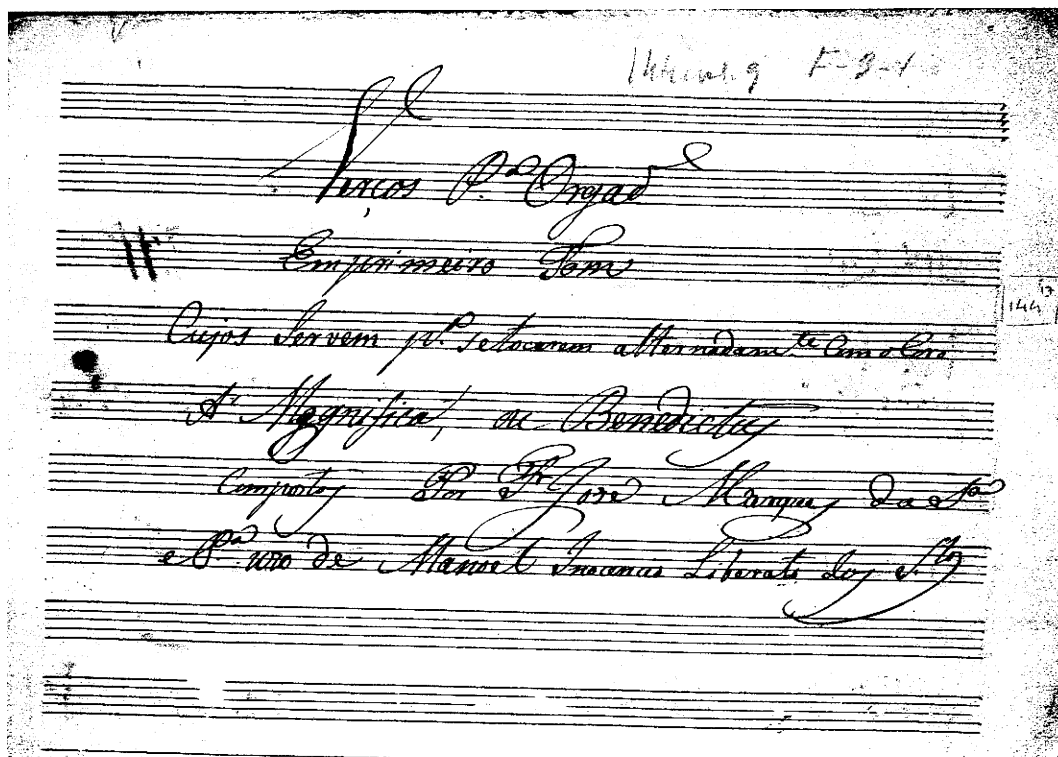 F-3-1
Verços P.ª Orgaõ
Emprimeiro Tom
144
Cujos Servem p.ª setocarem alternadam.te Com o Coro
A' Magnifica, ou Benedictus
Compostos Por Fr. José Marques da S.ª
e P.ª uzo de Manoel Inocencio Liberato dos S.tos